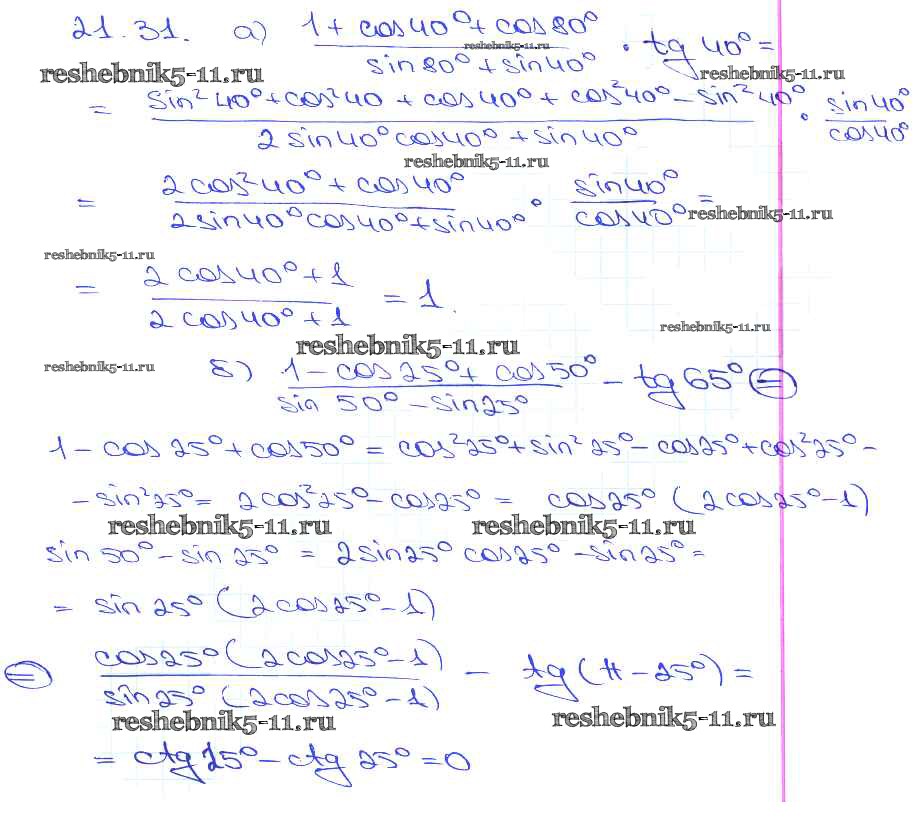 21.31. а) (1 + cos40° + cos80°)/(sin80° + sin40°) · tg 40° =
reshebnik5-11.ru reshebnik5-11.ru reshebnik5-11.ru
= (sin²40° + cos²40 + cos40° + cos²40° – sin²40°)/(2sin40°cos40° + sin40°) · sin40°/cos40°
reshebnik5-11.ru
= (2cos²40° + cos40°)/(2sin40°cos40° + sin40°) · sin40°/cos40° =
reshebnik5-11.ru
reshebnik5-11.ru
= (2cos40° + 1)/(2cos40° + 1) = 1.
reshebnik5-11.ru
reshebnik5-11.ru
reshebnik5-11.ru
б) (1 – cos25° + cos50°)/(sin50° – sin25°) – tg65° =
1 – cos25° + cos50° = cos²25° + sin²25° – cos25° + cos²25° –
– sin²25° = 2cos²25° – cos25° = cos25° (2cos25° – 1)
reshebnik5-11.ru reshebnik5-11.ru
sin50° – sin25° = 2sin25° cos25° – sin25° =
= sin25° (2cos25° – 1)
= cos25° (2cos25° – 1)/(sin25° (2cos25° – 1)) – tg(π – 25°) =
reshebnik5-11.ru reshebnik5-11.ru
= ctg25° – ctg25° = 0